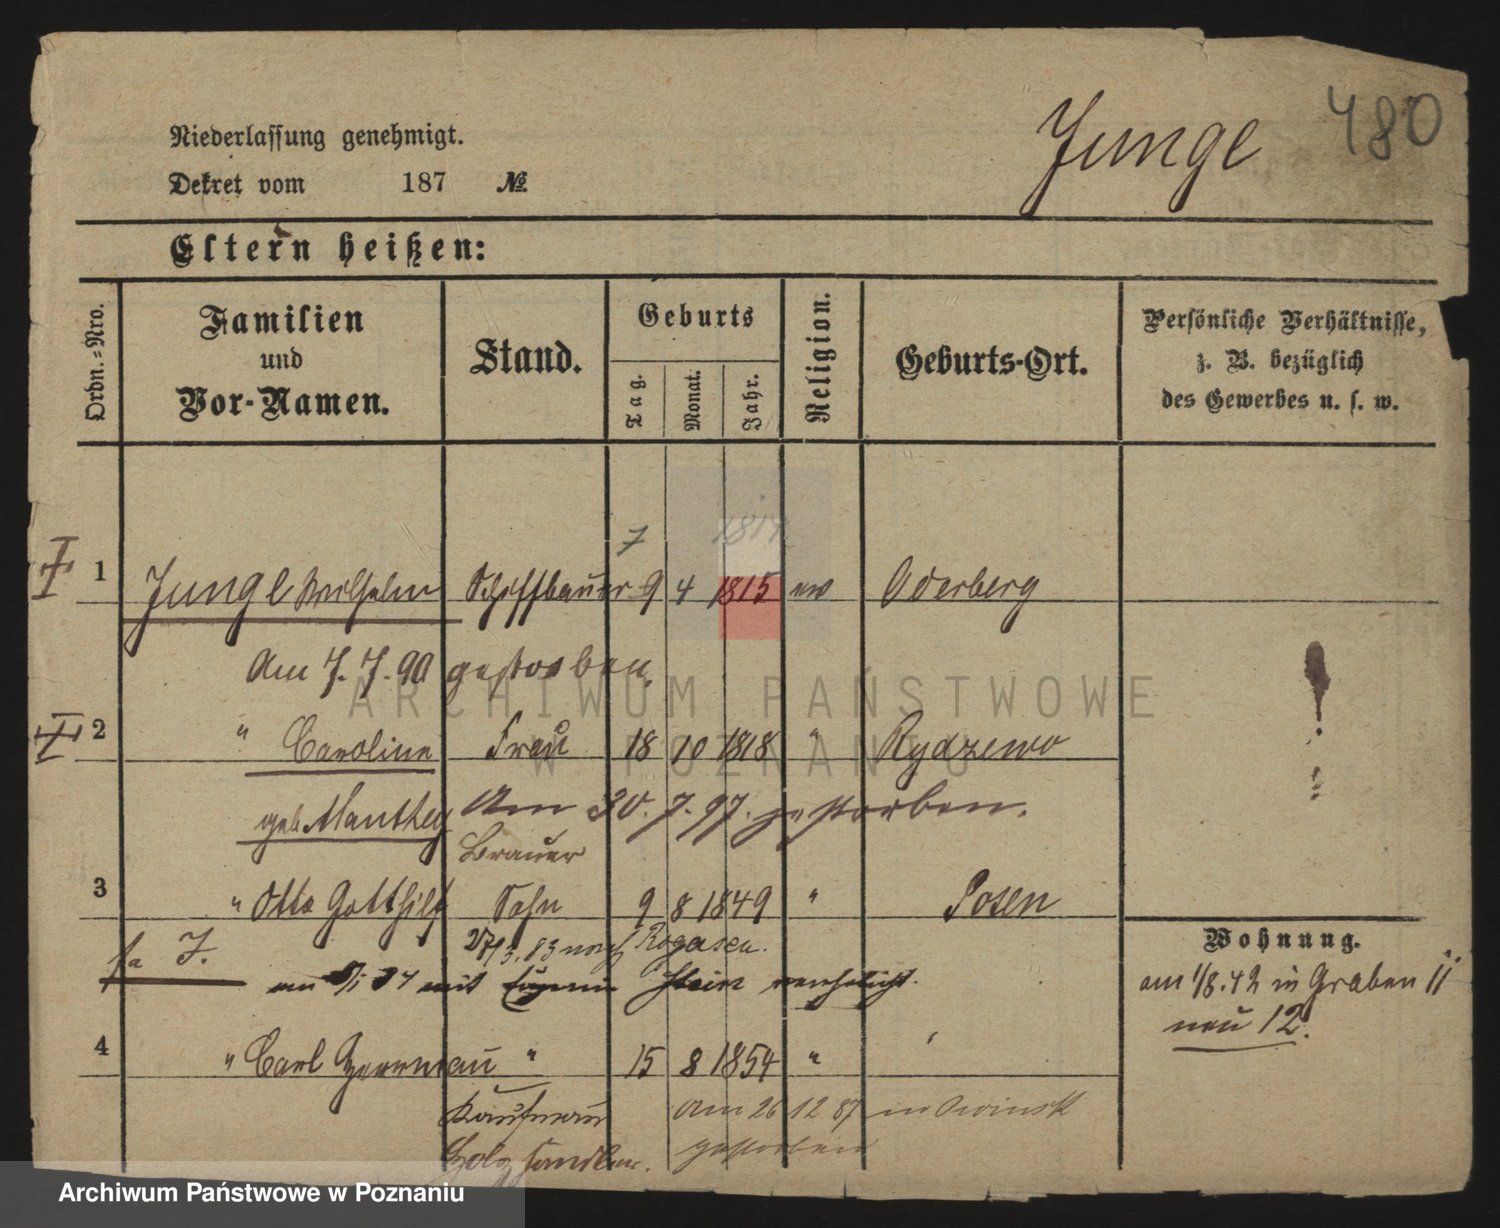 Junge 480
Niederlassung genehmigt.
Dekret vom 187 №
Eltern heißen:
Ordn.=Nro.
Familien
und
Vor-Namen.
Stand.
Geburts
Tag.
Monat.
Jahr.
Religion.
Geburts-Ort.
Persönliche Verhältnisse,
z. B. bezüglich
des Gewerbes u. s. w.
7 1814.
I 1 Junge Wilhelm Schiffbauer 9 4 1815 ev Oderberg
Am 7. 7. 90 gestorben.
ARCHIWUM PAŃSTWOWE
W POZNANIU
I 2 " Caroline Frau 18 10 1818 " Rydzewo
geb. Manthey Am 30. 7. 97. gestorben.
Brauer
3 " Otto Gotthilf Sohn 9 8 1849 " Posen
fa J. 27/3. 83 nach Rogasen.
mit Stein verehelicht.
Wohnung.
am 1/8. 42 in Graben 11
neu 12.
4 " Carl Herrmann " 15 8 1854 " "
Kaufmann Am 26 12 87 in Owinsk
Holzhändler. gestorben
Archiwum Państwowe w Poznaniu